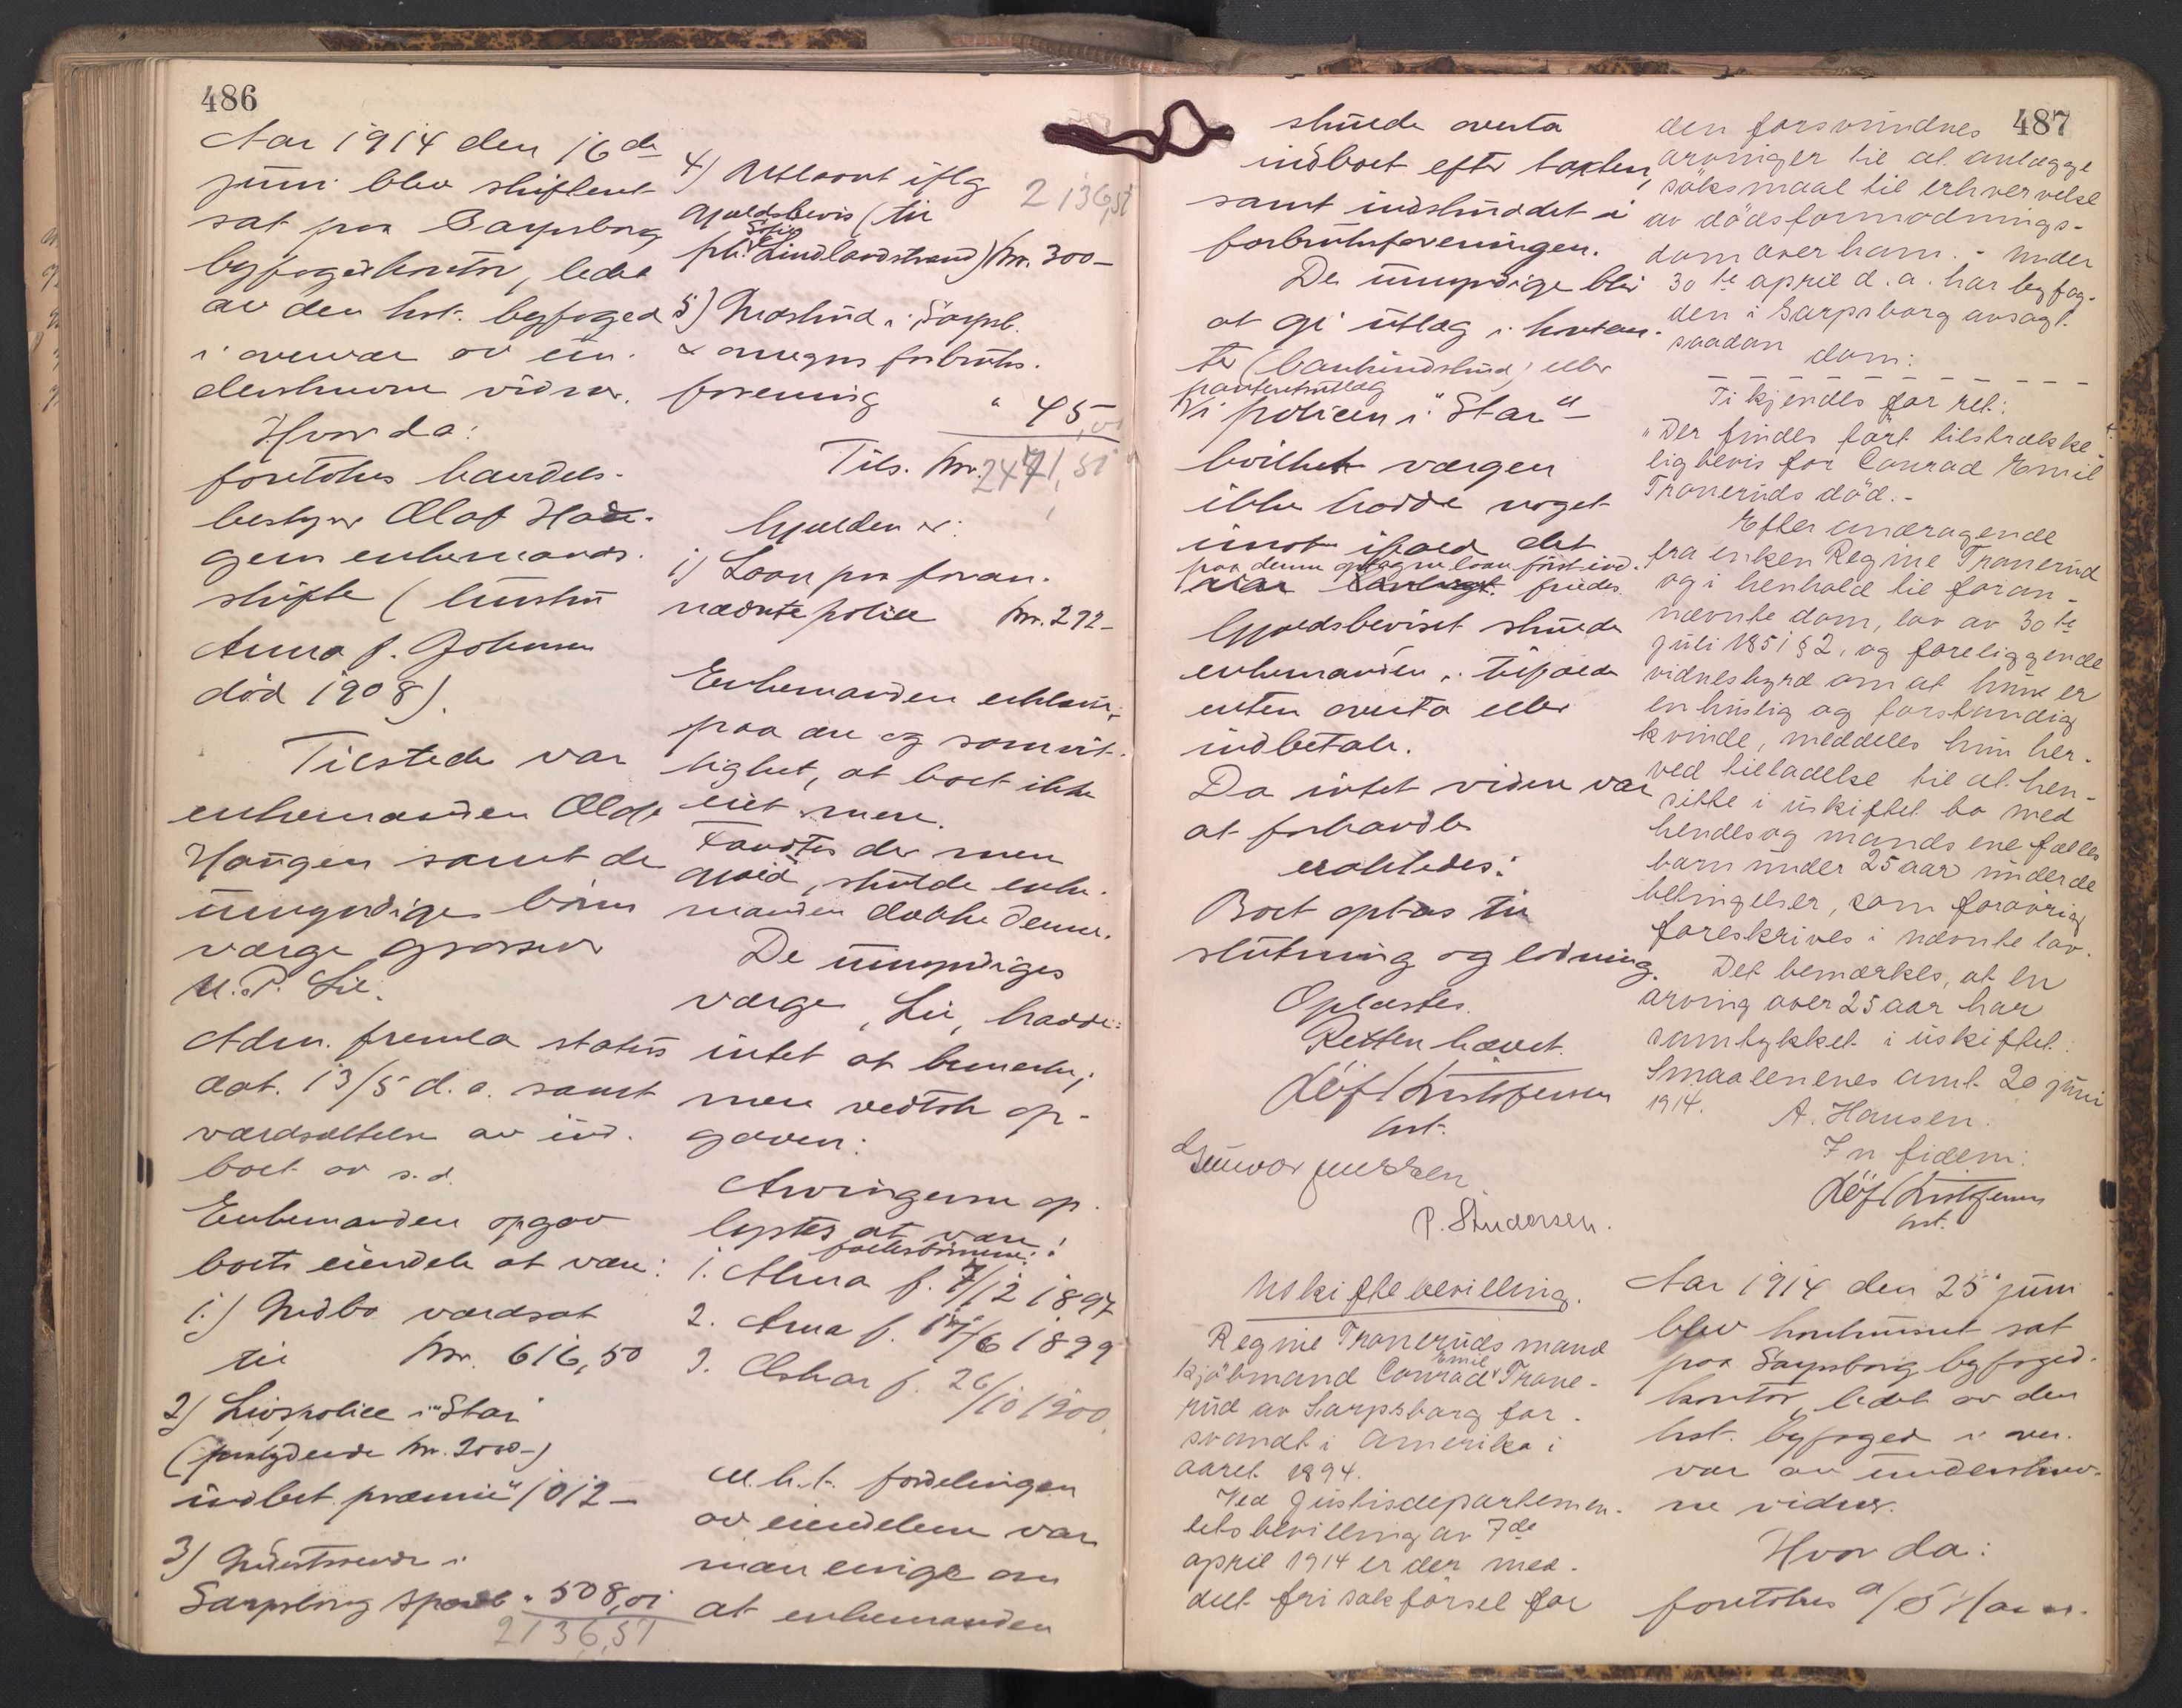 486
Aar 1914 den 16de
juni blev skifteret
sat paa Sarpsborg
byfogedkontor, ledet
av den kst. byfoged
i overvær av un-
derskrevne vidner.
Hvor da:
foretokes handels-
bestyrer Olaf Hau-
gens enkemands-
skifte (hustru
Anna f. Johnsen
död 1908).
Tilstede var
enkemanden Olaf
Haugen samt de
umyndige börns
værge grosserer
M. P. Lie.
Adm. fremla status
dat. 13/5 d. a. samt
værdsættelse av ind-
boet av s. d.
Enkemanden opgav
boets eiendele at være:
1.) Indbo værdsat
til kr. 616,50
2) Livspolice i "Star"
(paalydende kr. 2000-)
indbet. præmie " 1012-
3) Indestaaende i
Sarpsborg Spareb. " 508,01
2136,51
4) Utlaant iflg
2136,51
gjældsbevis (til
Sofie
frk. Lindlandstrand) kr. 300-
5) Indskud i Sarpsb.
& omegns forbruks-
forening " 45,00
Tils. kr. 2471,51
Gjælden er:
1) Laan paa foran-
nævnte police kr. 272-
Enkemanden erklær.
paa ære og samvit-
tighet, at boet ikke
eiet mere.
Fandtes der mere
gjæld, skulde enke-
manden dække denne.
De umyndiges
værge, Lie, hadde
intet at bemerke,
men vedtok op-
gaven.
Arvingerne op-
lystes at være:
fællesbörnene:
1. Alma f. 7/12 1897
2. Anna f. 17/6 1899
3. Oskar f. 26/10 1900
M. h. t. fordelingen
av eiendelene var
man enige om
at enkemanden
487
skulde overta
indboet efter taksten,
samt indskuddet i
forbruksforeningen.
De umyndige blir
at gi utlæg i kontan-
ter (bankindskud) eller
panteretsutlæg
i policen i "Star" -
hvilket værgen
ikke hadde noget
imot ifald det
paa denne optagne laan först ind-
friedes.
Gjældsbeviset skulde
enkemanden i tilfælde
enten overta eller
indbetale.
Da intet videre var
at forhandle
erakledes:
Boet optas til
slutning og lodning.
Oplæstes.
Retten hævet.
Löf Kristofersen
kst.
P. Andersen.
Uskiftebevilling.
Regine Traneruds mand
Emil
kjöbmand Conrad Trane-
rud av Sarpsborg for-
svandt i Amerika i
aaret 1894.
Ved Justisdepartemen-
tets bevilling av 7de
april 1914 er der med-
delt fri sakförsel for
den forsvundnes
arvinger til at anlægge
söksmaal til erhvervelse
av dödsformodnings-
dom over ham. - Under
30te april d. a. har byfog-
den i Sarpsborg avsagt
saadan dom:
Ti kjendes for ret:
"Der findes fört tilstrække-
lig bevis for Conrad Emil
Traneruds död. -
Efter andragende
fra enken Regine Tranerud
og i henhold til foran-
nævnte dom, lov av 30te
juli 1851 § 2, og foreliggende
vidnesbyrd om at hun er
en huslig og forstandig
kvinde, meddeles hun her-
ved tilladelse til at hen-
sitte i uskiftet bo med
hendes og mands ene fælles
barn under 25 aar under de
betingelser, som forövrig
foreskrives i nævnte lov.
Det bemærkes, at en
arving over 25 aar har
samtykket i uskiftet.
Smaalenenes amt 20 juni
1914.
A. Hansen.
In fidem:
Löf Kristofersen
kst.
Aar 1914 den 25 juni
blev konkursret sat
paa Sarpsborg byfoged-
kontor, ledet av den
kst. byfoged i over-
vær av underskrev-
ne vidner.
Hvor da:
foretokes a/s